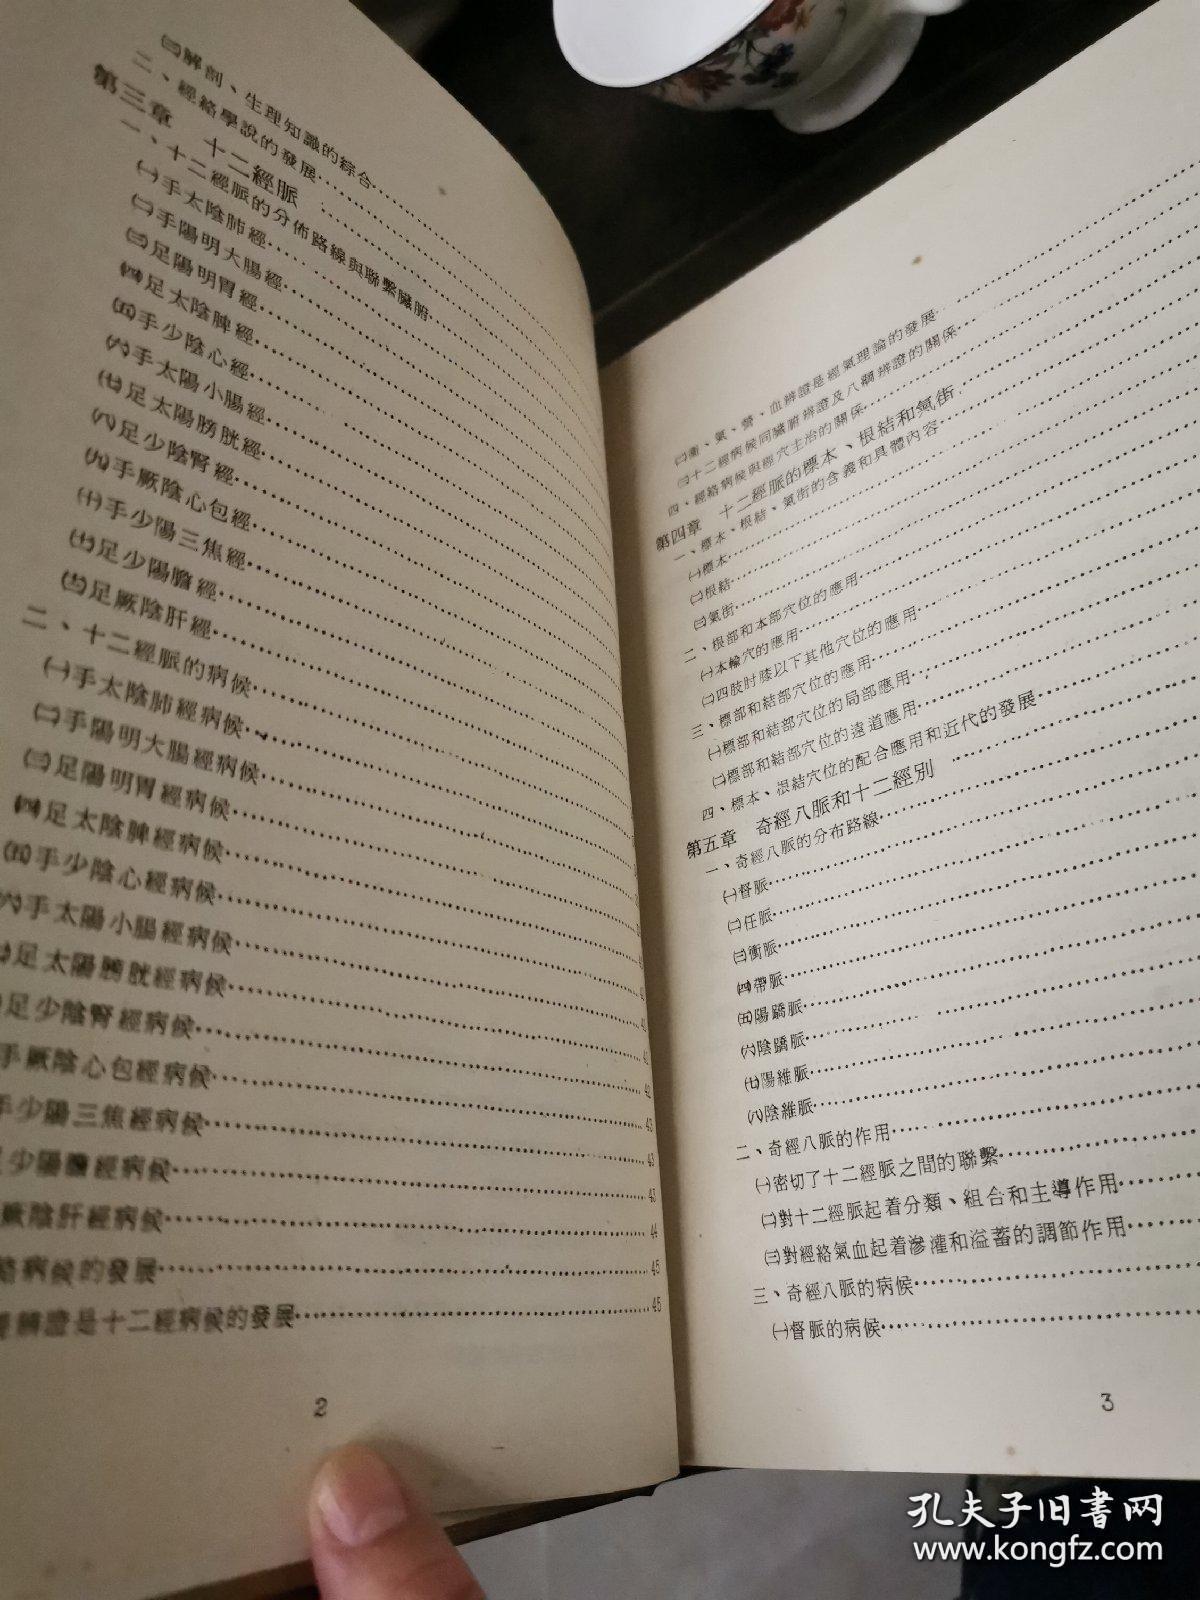 ㈢解剖、生理知識的綜合
二、經絡學說的發展
第三章 十二經脈
一、十二經脈的分佈路線與聯繫臟腑
㈠手太陰肺經
㈡手陽明大腸經
㈢足陽明胃經
㈣足太陰脾經
㈤手少陰心經
㈥手太陽小腸經
㈦足太陽膀胱經
㈧足少陰腎經
㈨手厥陰心包經
㈩手少陽三焦經
足少陽膽經
足厥陰肝經
二、十二經脈的病候
㈠手太陰肺經病候
㈡手陽明大腸經病候
㈢足陽明胃經病候
㈣足太陰脾經病候
㈤手少陰心經病候
㈥手太陽小腸經病候
足太陽膀胱經病候
足少陰腎經病候 41
手厥陰心包經病候 42
手少陽三焦經病候 43
少陽膽經病候 43
厥陰肝經病候 44
病候的發展 45
辨證是十二經病候的發展 45
2
㈡衛、氣、營、血辨證是經氣理論的發展
㈢十二經病候同臟腑辨證及八綱辨證的關係
四、經絡病候與經穴主治的關係
第四章 十二經脈的標本、根結和氣街
一、標本、根結、氣街的含義和具體內容
㈠標本
㈡根結
㈢氣街
二、根部和本部穴位的應用
㈠本輸穴的應用
㈡四肢肘膝以下其他穴位的應用
三、標部和結部穴位的應用
㈠標部和結部穴位的局部應用
㈡標部和結部穴位的遠道應用
四、標本、根結穴位的配合應用和近代的發展
第五章 奇經八脈和十二經別
一、奇經八脈的分布路線
㈠督脈
㈡任脈
㈢衝脈
㈣帶脈
㈤陽蹻脈
㈥陰蹻脈
㈦陽維脈
㈧陰維脈
二、奇經八脈的作用
㈠密切了十二經脈之間的聯繫
㈡對十二經脈起着分類、組合和主導作用
㈢對經絡氣血起着滲灌和溢蓄的調節作用
三、奇經八脈的病候
㈠督脈的病候
3
孔夫子旧書网
www.kongfz.com